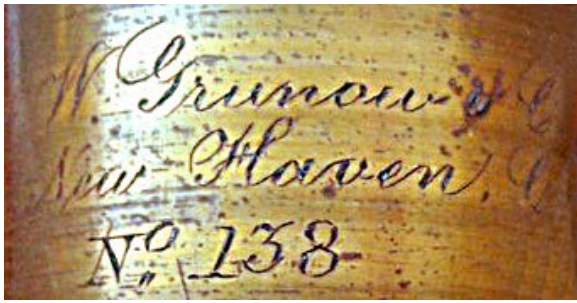 W. Grunow & C
New Haven, C
No. 138